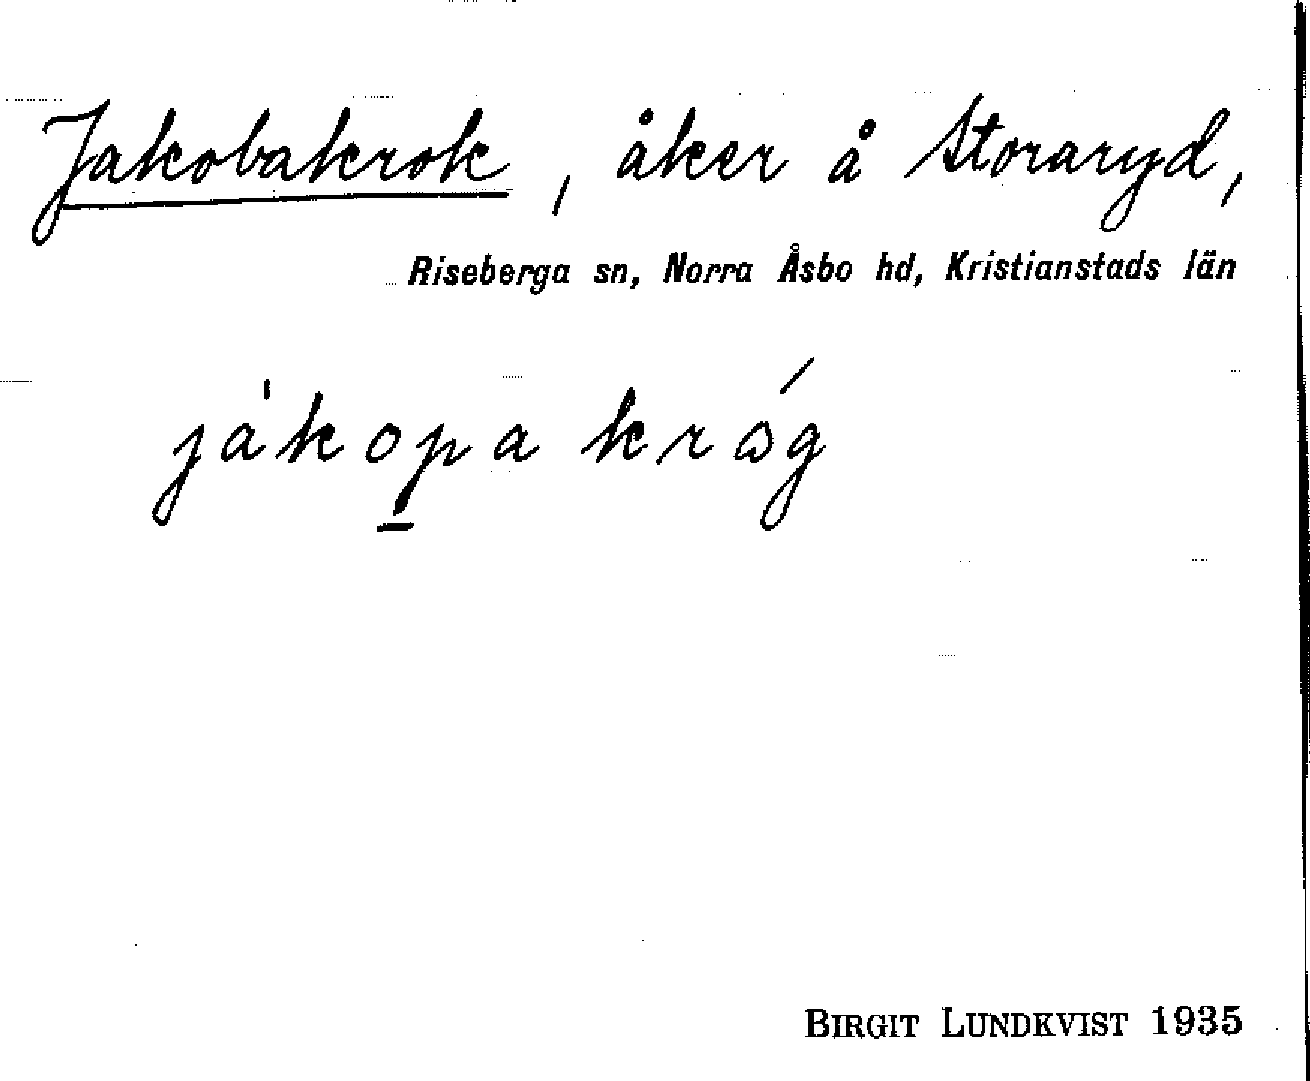 Jakobakrok, åker å Storaryd,
Riseberga sn, Norra Åsbo hd, Kristianstads län
jákopa króg
BIRGIT LUNDKVIST 1935